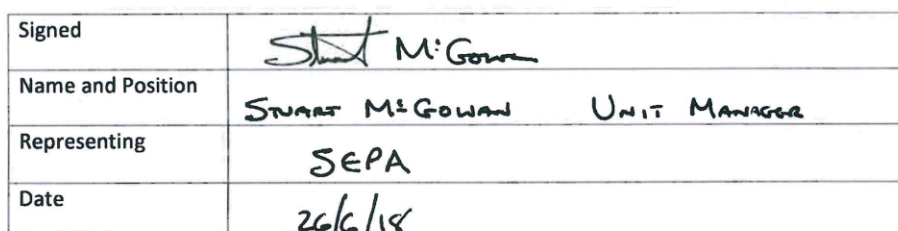 Signed Stuart McGowan
Name and Position STUART McGOWAN UNIT MANAGER
Representing SEPA
Date 26/6/18